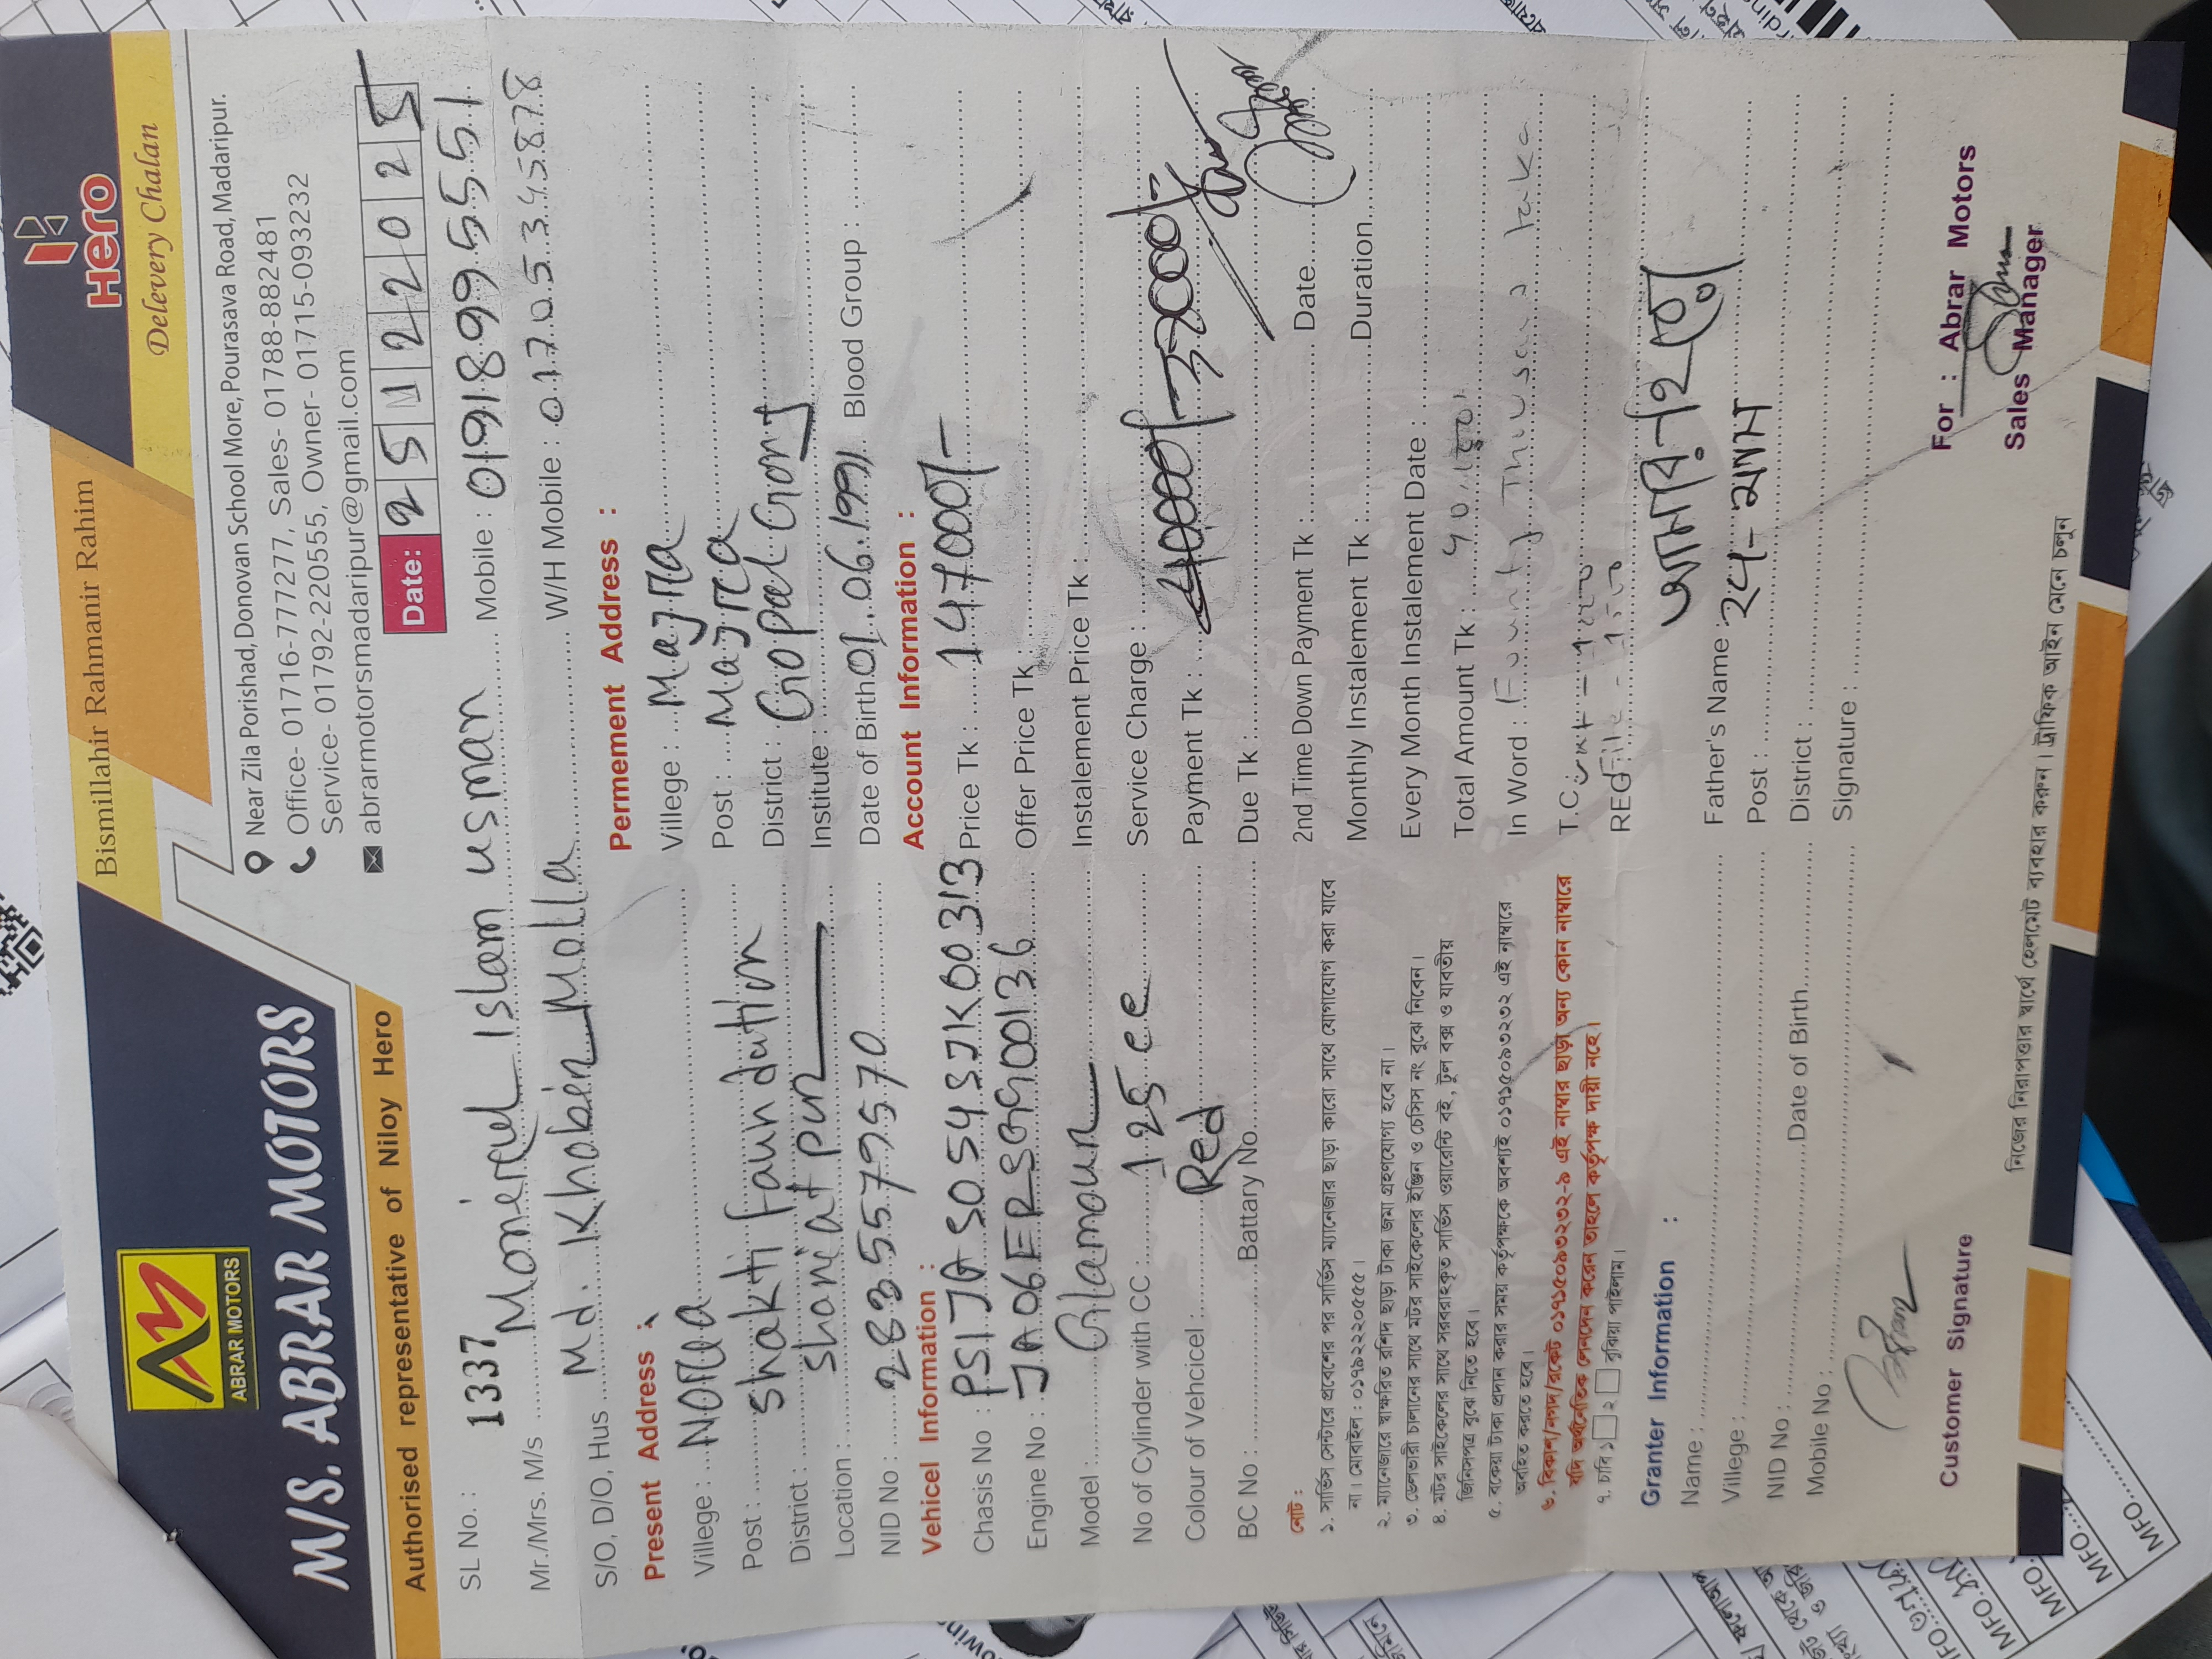 Bismillahir Rahmanir Rahim
Hero
Delevery Chalan
ABRAR MOTORS
M/S. ABRAR MOTORS
Authorised representative of Niloy Hero
Near Zila Porishad, Donovan School More, Pourasava Road, Madaripur.
Office- 01716-777277, Sales- 01788-882481
Service- 01792-220555, Owner- 01715-093232
abrarmotorsmadaripur@gmail.com
Date: 25122025
SL No. : 1337
Mr./Mrs. M/s Monirul Islam usman Mobile : 01918995551
S/O, D/O, Hus Md. Khabir Molla W/H Mobile : 01705345878
Present Address :
Villege : Noria
Post : Shakti Foundution
District : Shariat pur
Location :
NID No : 2835579570
Permement Address :
Villege : Majra
Post : Majra
District : Gopal Gonj
Institute :
Date of Birth 01.06.1991 Blood Group :
Vehicel Information :
Chasis No : PS1JASO54SJK00313
Engine No : JA06ERSGG00136
Model : Glamour
No of Cylinder with CC : 125 cc
Colour of Vehcicel Red
BC No : Battary No
Account Information :
Price Tk : 147000/-
Offer Price Tk
Instalement Price Tk
Service Charge :
Payment Tk : 40000/- 37000/-
Due Tk :
2nd Time Down Payment Tk : Date
Monthly Instalement Tk : Duration
Every Month Instalement Date :
Total Amount Tk : 40,
In Word : Fourty Thousand Taka
T.C.
REG File - 1500
নোট :
১. সার্ভিস সেন্টারে প্রবেশের পর সার্ভিস ম্যানেজার ছাড়া কারো সাথে যোগাযোগ করা যাবে
না। মোবাইল : ০১৭৯২২২০৫৫৫।
২. ম্যানেজারে স্বাক্ষরিত রশিদ ছাড়া টাকা জমা গ্রহণযোগ্য হবে না।
৩. ডেলভারী চালানের সাথে মটর সাইকেলের ইঞ্জিন ও চেসিস নং বুঝে নিবেন।
৪. মটর সাইকেলের সাথে সরবরাহকৃত সার্ভিস ওয়ারেন্টি বই, টুল বক্স ও যাবতীয়
জিনিসপত্র বুঝে নিতে হবে।
৫. বকেয়া টাকা প্রদান করার সময় কর্তৃপক্ষকে অবশ্যই ০১৭১৫০৯৩২৩২ এই নাম্বারে
অবহিত করতে হবে।
৬. বিকাশ/নগদ/রকেট ০১৭১৫০৯৩২৩২-৯ এই নাম্বার ছাড়া অন্য কোন নাম্বারে
যদি অর্থনৈতিক লেনদেন করেন তাহলে কর্তৃপক্ষ দায়ী নহে।
৭. চাবি ১ ২ বুঝিয়া পাইলাম।
Granter Information :
Name :
Villege :
NID No : Date of Birth
Mobile No :
Father's Name :
Post :
District :
Signature :
Customer Signature
For : Abrar Motors
Sales Manager
নিজের নিরাপত্তার স্বার্থে হেলমেট ব্যবহার করুন। ট্রাফিক আইন মেনে চলুন
MFO
MFO
MFO
MFO